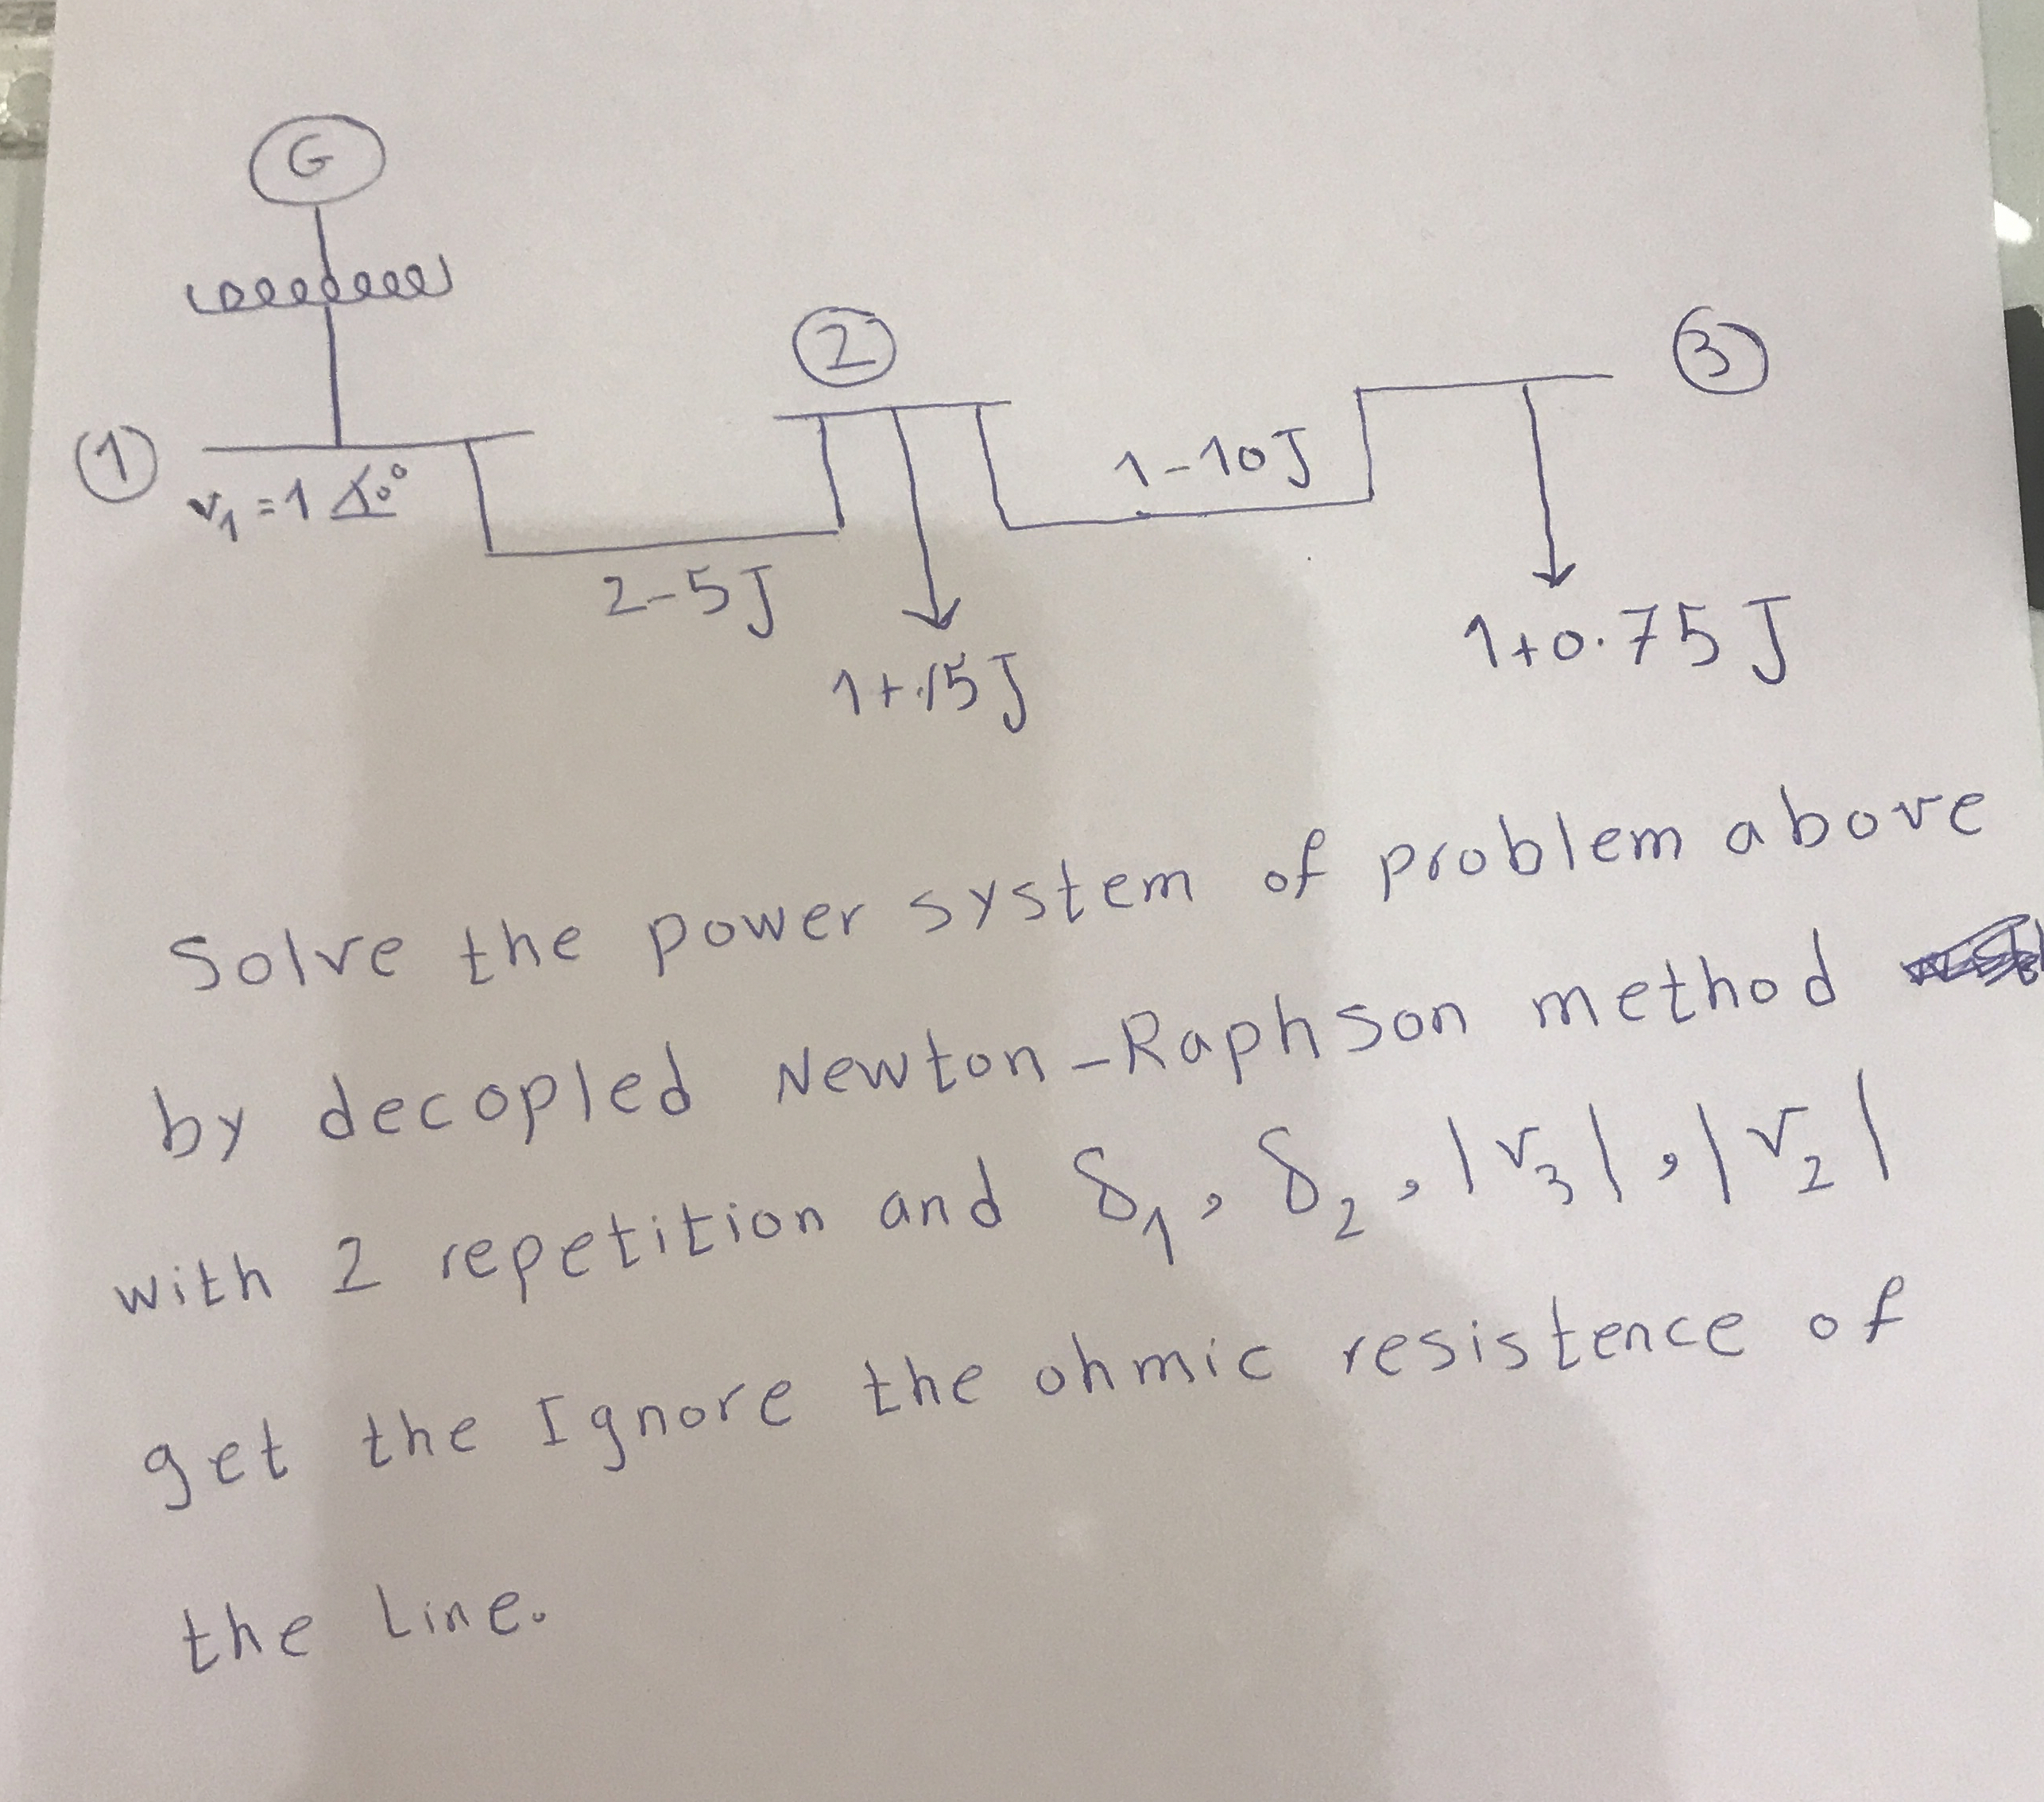 G
①
v₁ = 1 ∡0°
2-5J
②
1+.15J
1-10J
③
1+0.75J
Solve the power system of problem above
by decopled Newton-Raphson method
with 2 repetition and δ₁, δ₂, |v₃|, |v₂|
get the Ignore the ohmic resistence of
the Line.